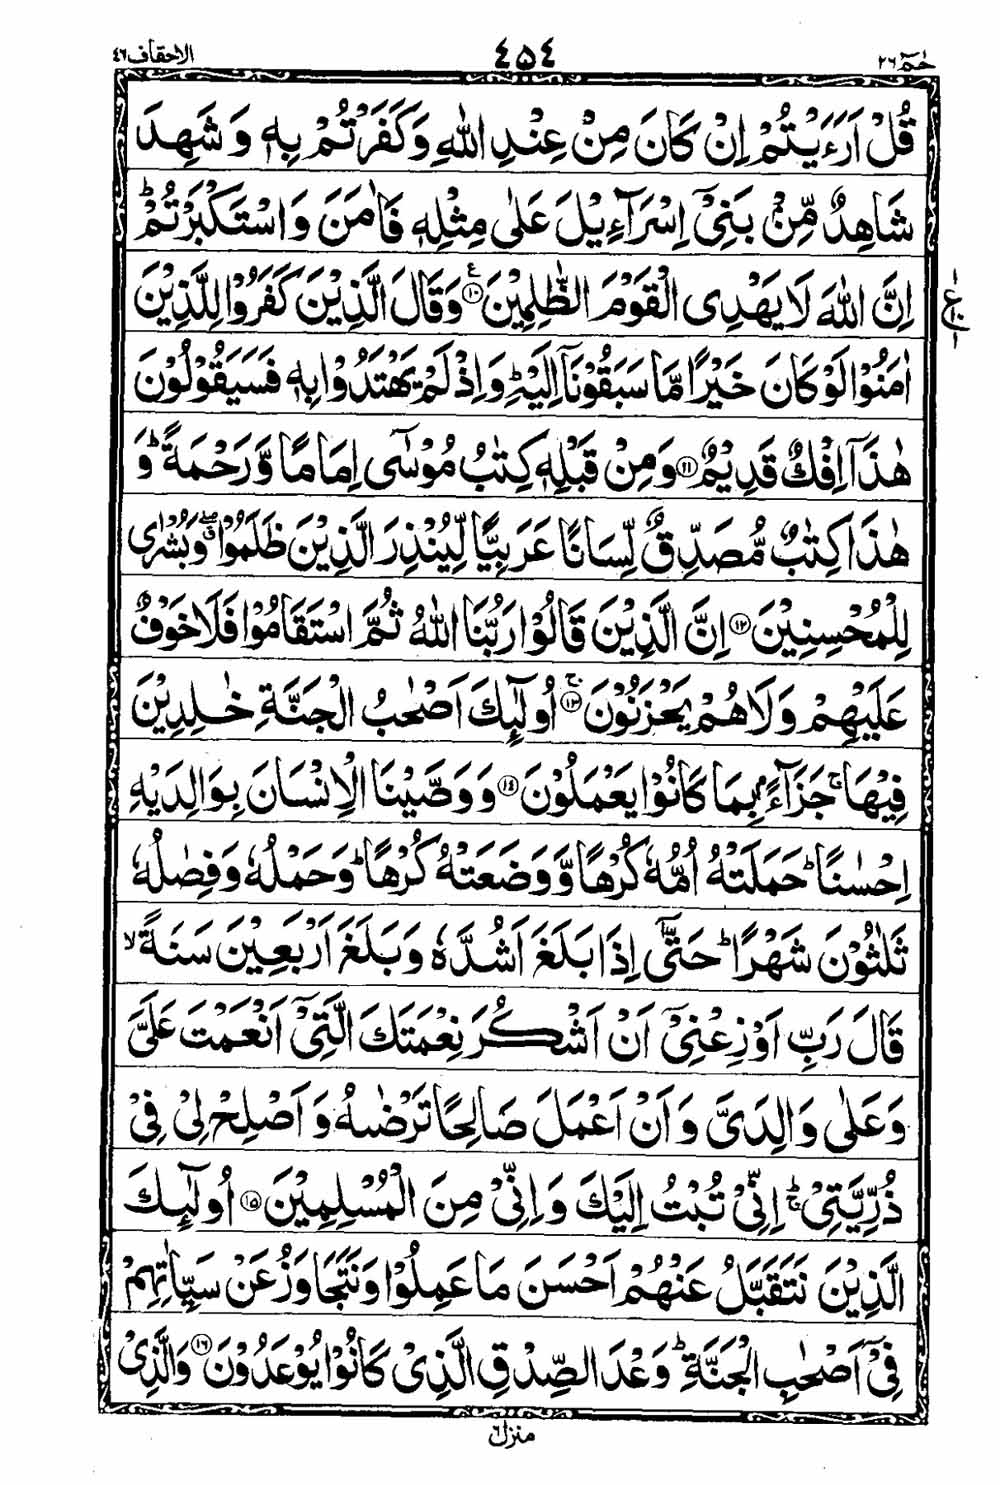 الاحقاف ٤٦ ٤٥٤ حٰمٓ ٢٦
قُلْ اَرَءَيْتُمْ اِنْ كَانَ مِنْ عِنْدِ اللّٰهِ وَكَفَرْتُمْ بِهٖ وَ شَهِدَ
شَاهِدٌ مِّنْۢ بَنِیْۤ اِسْرَآءِيْلَ عَلٰى مِثْلِهٖ فَاٰمَنَ وَ اسْتَكْبَرْتُمْ ؕ
اِنَّ اللّٰهَ لَا يَهْدِی الْقَوْمَ الظّٰلِمِيْنَ ۧ﴿١٠﴾ وَقَالَ الَّذِيْنَ كَفَرُوْا لِلَّذِيْنَ
اٰمَنُوْا لَوْ كَانَ خَيْرًا مَّا سَبَقُوْنَاۤ اِلَيْهِ ؕ وَ اِذْ لَمْ يَهْتَدُوْا بِهٖ فَسَيَقُوْلُوْنَ
هٰذَاۤ اِفْكٌ قَدِيْمٌ ﴿١١﴾ وَمِنْ قَبْلِهٖ كِتٰبُ مُوْسٰۤى اِمَامًا وَّ رَحْمَةً ؕ وَ
هٰذَا كِتٰبٌ مُّصَدِّقٌ لِّسَانًا عَرَبِيًّا لِّيُنْذِرَ الَّذِيْنَ ظَلَمُوْا ۖۗ وَ بُشْرٰى
لِلْمُحْسِنِيْنَ ﴿١٢﴾ اِنَّ الَّذِيْنَ قَالُوْا رَبُّنَا اللّٰهُ ثُمَّ اسْتَقَامُوْا فَلَا خَوْفٌ
عَلَيْهِمْ وَ لَا هُمْ يَحْزَنُوْنَ ۚ﴿١٣﴾ اُولٰٓئِكَ اَصْحٰبُ الْجَنَّةِ خٰلِدِيْنَ
فِيْهَا ۚ جَزَآءًۢ بِمَا كَانُوْا يَعْمَلُوْنَ ﴿١٤﴾ وَ وَصَّيْنَا الْاِنْسَانَ بِوَالِدَيْهِ
اِحْسٰنًا ؕ حَمَلَتْهُ اُمُّهٗ كُرْهًا وَّ وَضَعَتْهُ كُرْهًا ؕ وَ حَمْلُهٗ وَ فِصٰلُهٗ
ثَلٰثُوْنَ شَهْرًا ؕ حَتّٰۤى اِذَا بَلَغَ اَشُدَّهٗ وَ بَلَغَ اَرْبَعِيْنَ سَنَةً ۙ
قَالَ رَبِّ اَوْزِعْنِیْۤ اَنْ اَشْكُرَ نِعْمَتَكَ الَّتِیْۤ اَنْعَمْتَ عَلَیَّ
وَ عَلٰى وَالِدَیَّ وَ اَنْ اَعْمَلَ صَالِحًا تَرْضٰىهُ وَ اَصْلِحْ لِیْ فِیْ
ذُرِّيَّتِیْ ۚ اِنِّیْ تُبْتُ اِلَيْكَ وَ اِنِّیْ مِنَ الْمُسْلِمِيْنَ ﴿١٥﴾ اُولٰٓئِكَ
الَّذِيْنَ نَتَقَبَّلُ عَنْهُمْ اَحْسَنَ مَا عَمِلُوْا وَ نَتَجَاوَزُ عَنْ سَيِّاٰتِهِمْ
فِیْۤ اَصْحٰبِ الْجَنَّةِ ؕ وَعْدَ الصِّدْقِ الَّذِیْ كَانُوْا يُوْعَدُوْنَ ﴿١٦﴾ وَ الَّذِیْ
منزل ٦